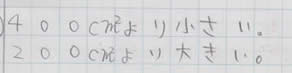 )400cm²より小さい。
200cm²より大きい。